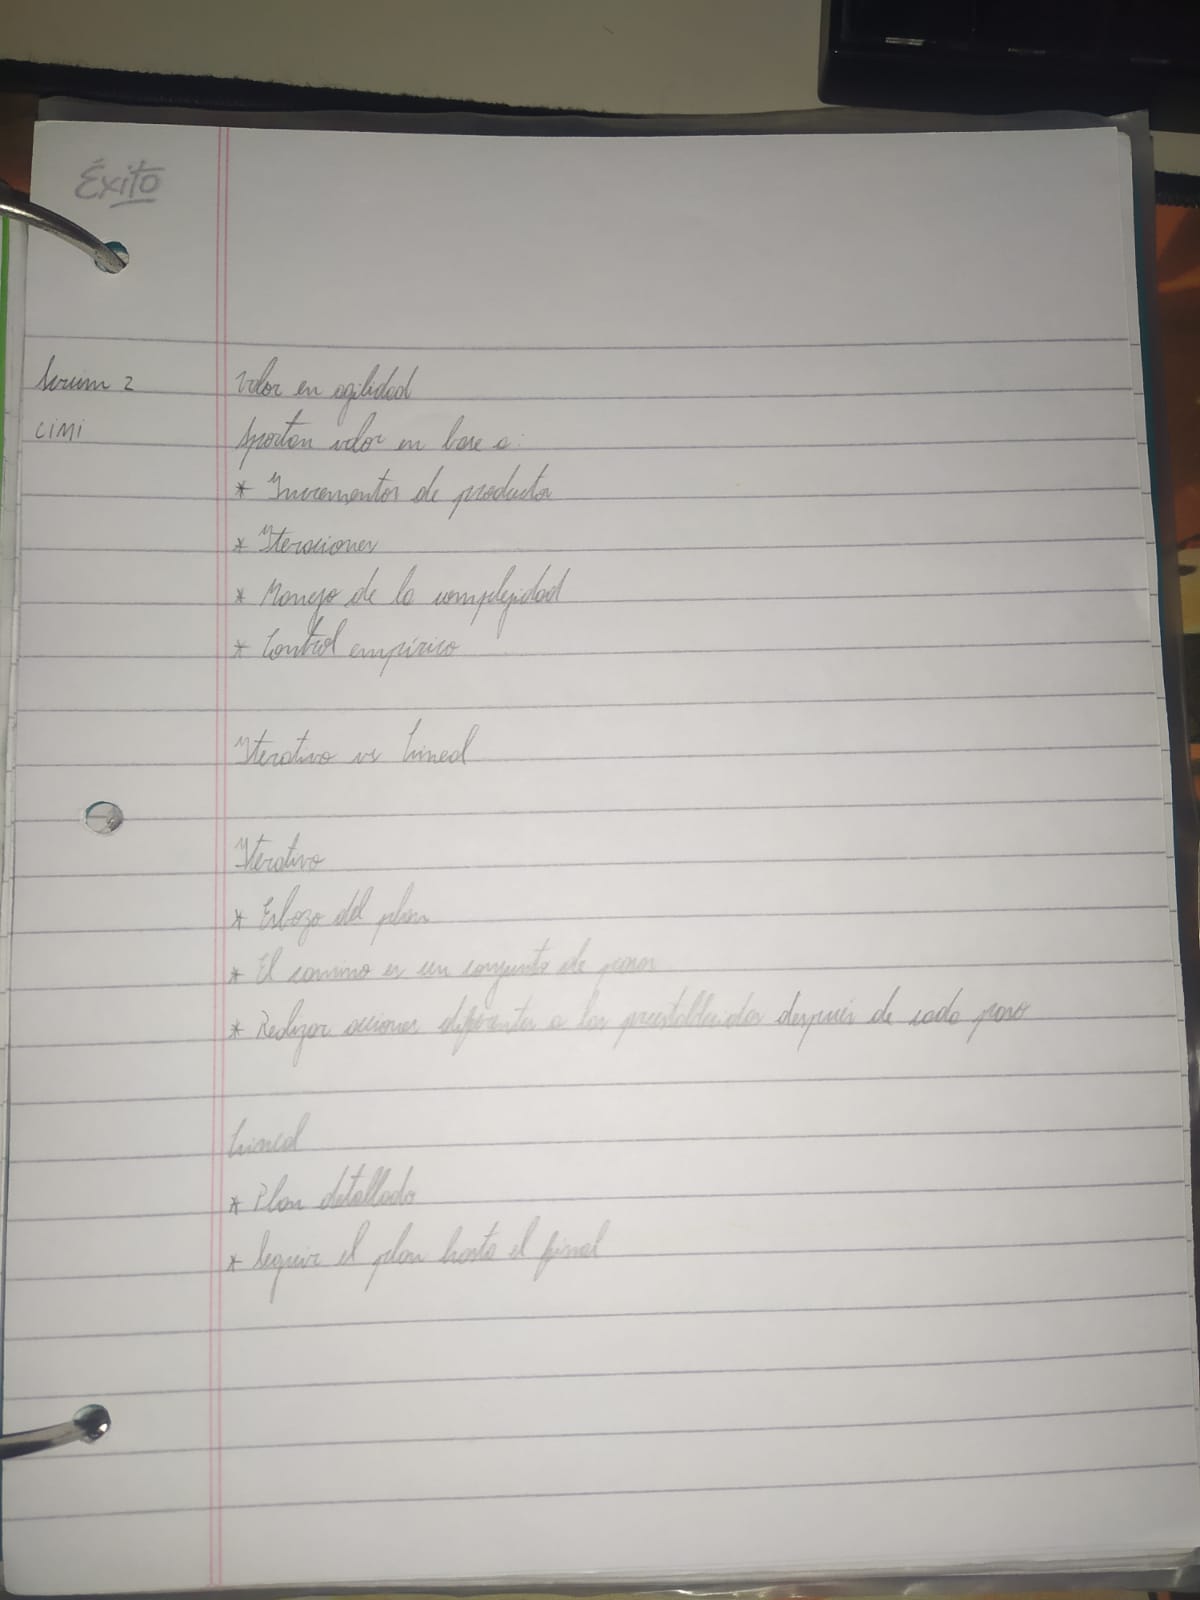 Éxito
Scrum 2
Valor en agilidad
CIMI
Aportan valor en base a:
* Incrementos de productos
* Iteraciones
* Manejo de la complejidad
* Control empírico
Iterativo vs Lineal
Iterativo
* Esbozo del plan
* El camino es un conjunto de pasos
* Realizar acciones diferentes a las preestablecidas después de cada paso
Lineal
* Plan detallado
* Seguir el plan hasta el final